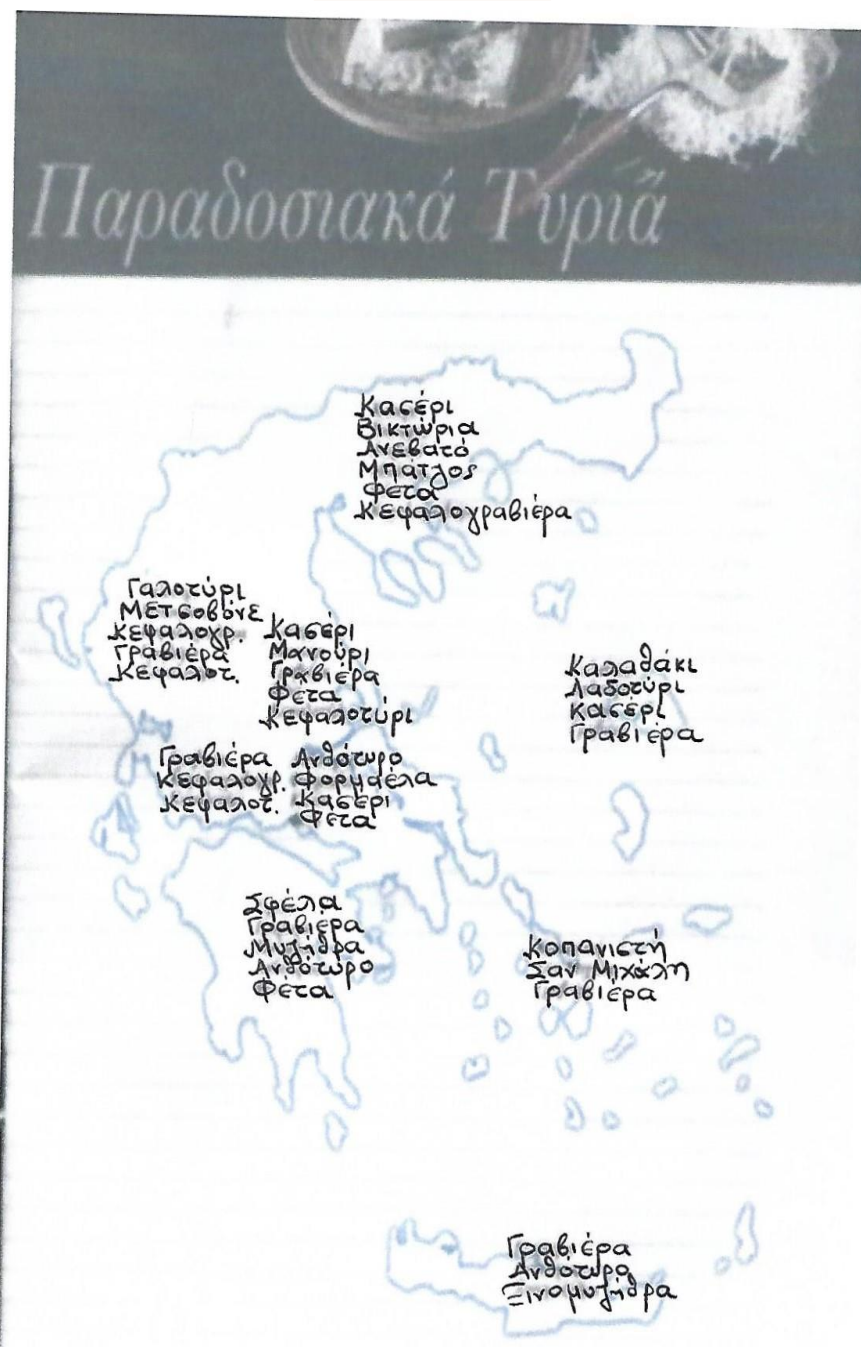 Παραδοσιακά Τυριά
Κασέρι
Βικτώρια
Ανεβατό
Μπάτζος
Φετα
Κεφαλογραβιέρα
Γαλοτύρι
Μετσοβόνε
Κεφαλογρ.
Γραβιέρα
Κεφαλοτ.
Κασέρι
Μανούρι
Γραβιέρα
Φετα
Κεφαλοτύρι
Καλαθάκι
Λαδοτύρι
Κασέρι
Γραβιέρα
Γραβιέρα
Κεφαλογρ.
Κεφαλοτ.
Ανθότυρο
Φορμαέλα
Κασέρι
Φετα
Σφέλα
Γραβιέρα
Μυζήθρα
Ανθότυρο
Φέτα
Κοπανιστή
Σαν Μιχάλη
Γραβιέρα
Γραβιέρα
Ανθότυρο
Ξινομυζήθρα